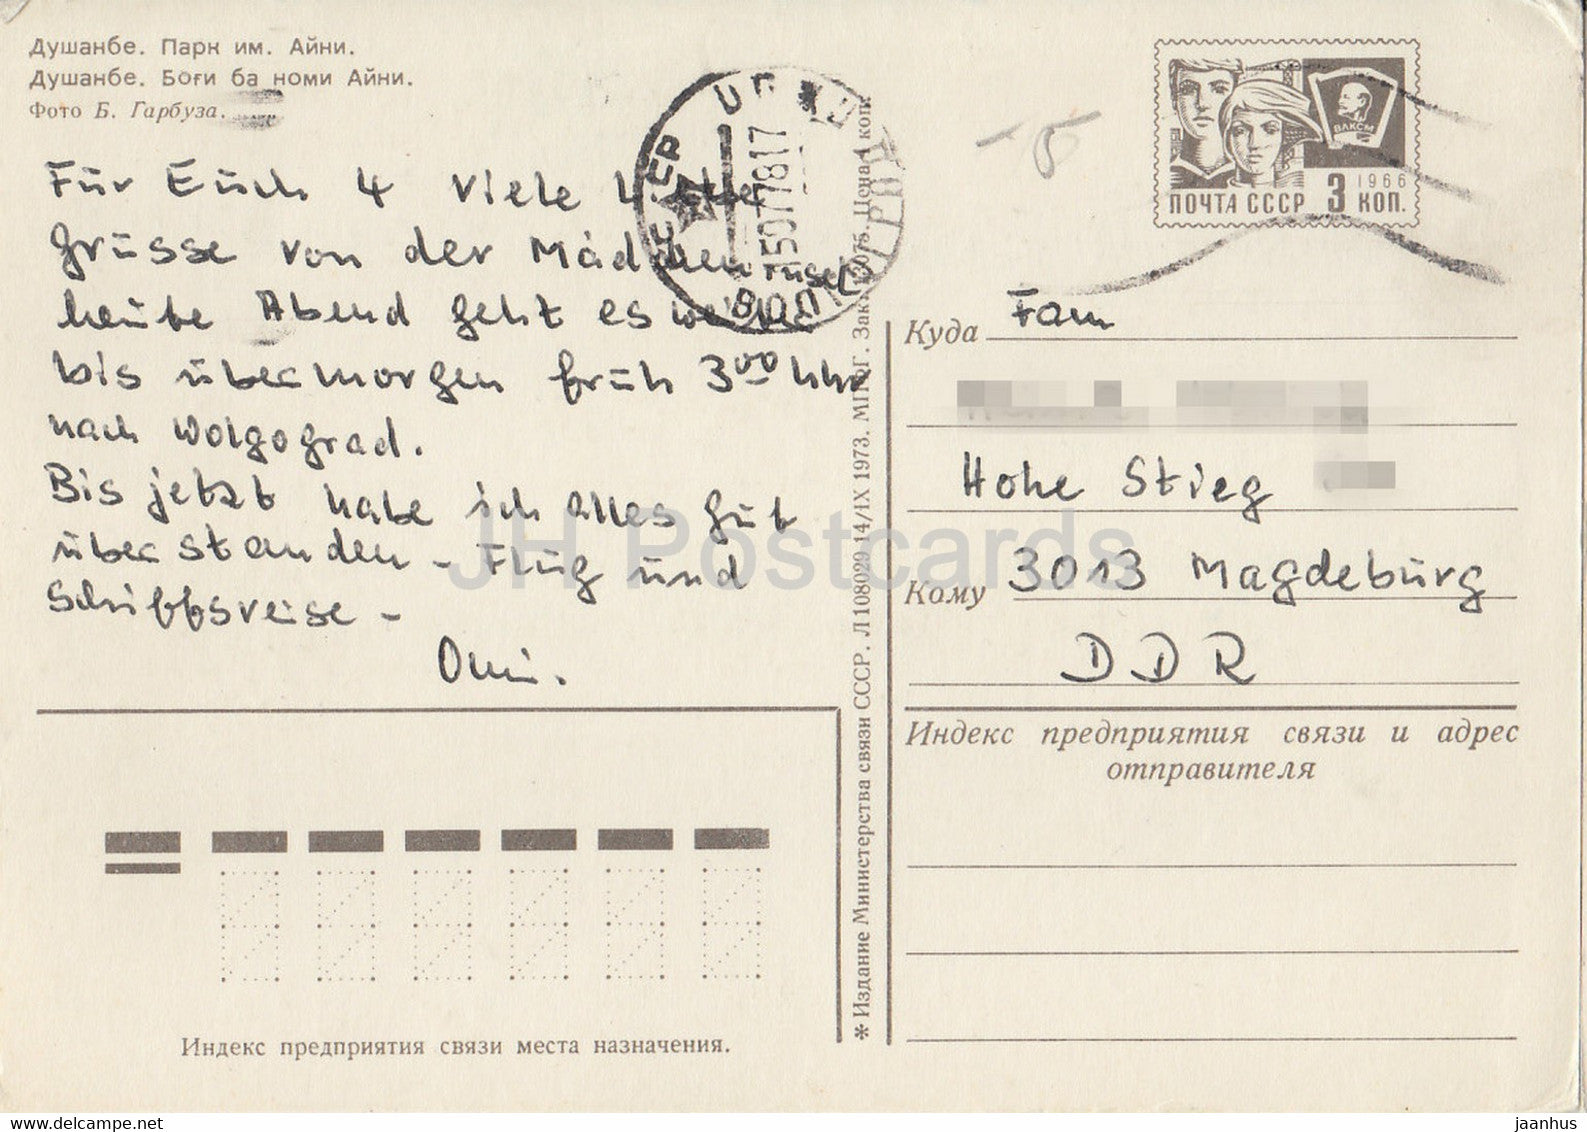 Душанбе. Парк им. Айни.
Душанбе. Боғи ба номи Айни.
Фото Б. Гарбуза.
Für Euch 4 viele liebe
Grüsse von der Mädcheninsel
heute Abend geht es weiter
bis übermorgen früh 3⁰⁰ Uhr
nach Wolgograd.
Bis jetzt habe ich alles gut
überstanden - Flug und
Schiffsreise -
Omi.
Индекс предприятия связи места назначения.
✻ Издание Министерства связи СССР. Л 108029 14/IX 1973. МПФГ. Зак. Цена 4 коп.
ВОЛГОГРАД
ВЛКСМ
1966
ПОЧТА СССР 3 КОП.
Куда Fam
Hohe Stieg
Кому 3013 Magdeburg
DDR
Индекс предприятия связи и адрес
отправителя
JH Postcards
delcampe.net
jaanhus